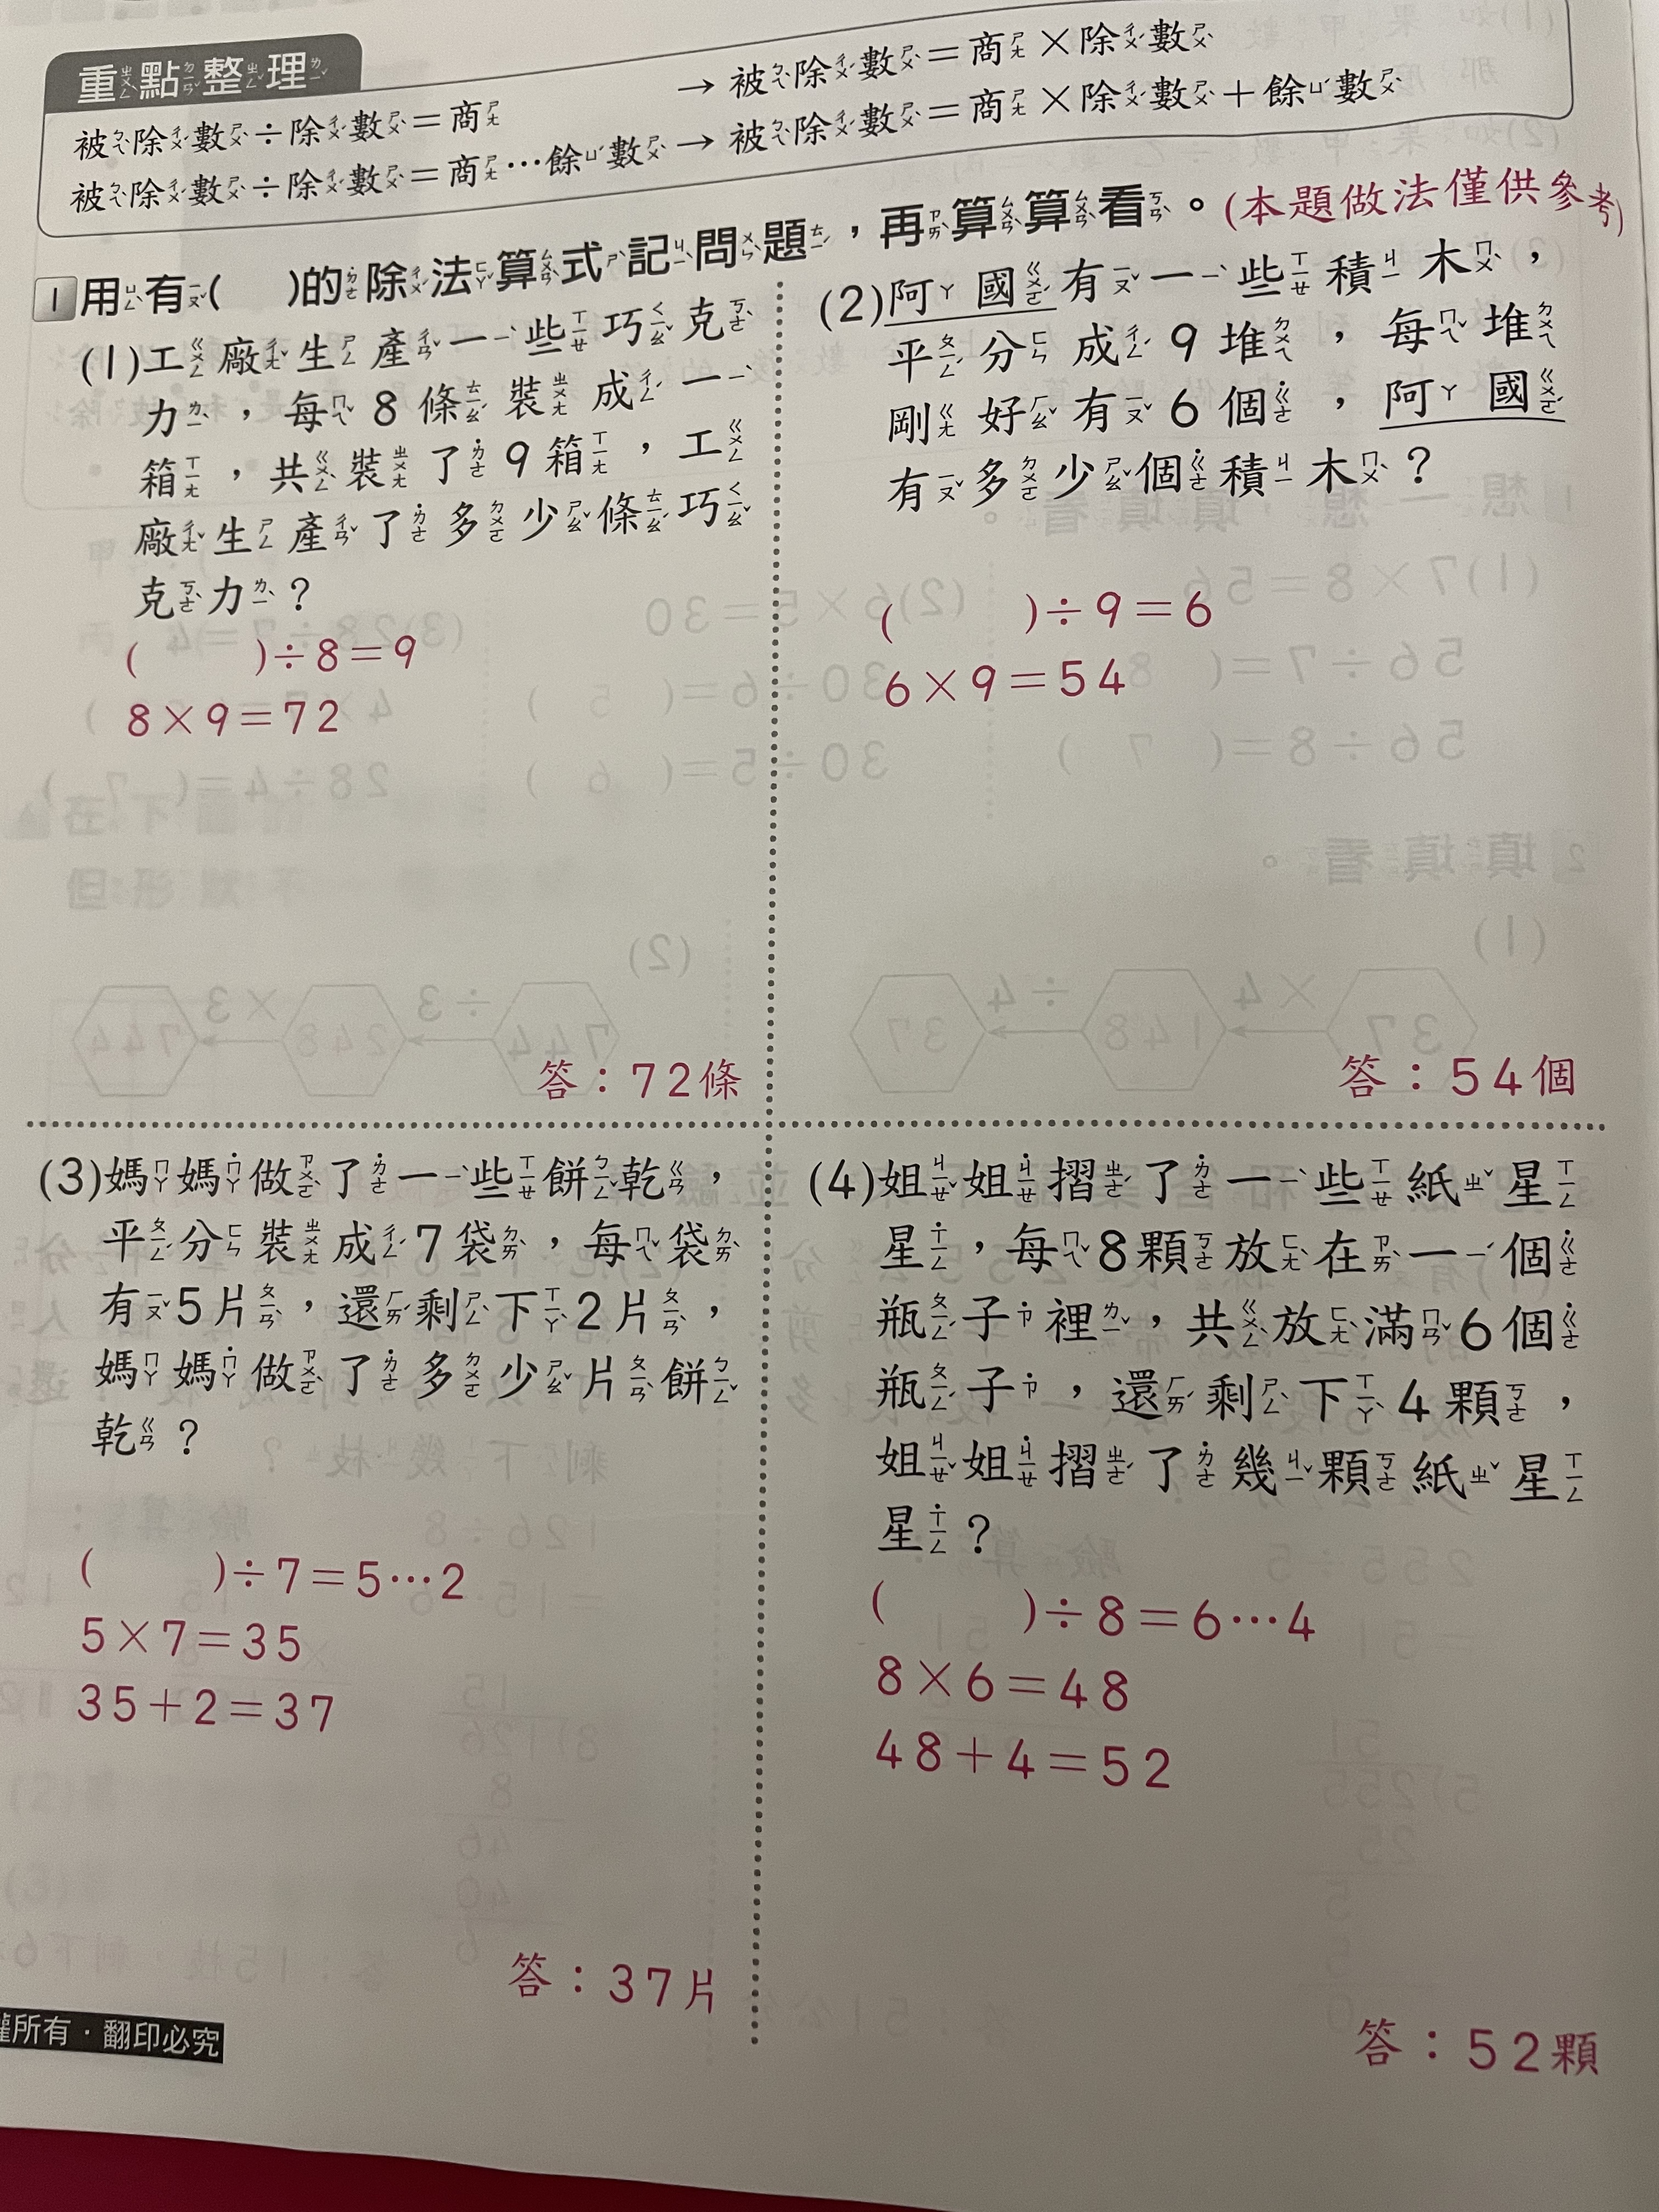 重點整理
被除數÷除數=商 → 被除數=商×除數
被除數÷除數=商…餘數 → 被除數=商×除數+餘數
1 用有( )的除法算式記問題,再算算看。(本題做法僅供參考)
(1)工廠生產一些巧克
力,每8條裝成一
箱,共裝了9箱,工
廠生產了多少條巧
克力?
( )÷8=9
8×9=72
答:72條
(2)阿國有一些積木,
平分成9堆,每堆
剛好有6個,阿國
有多少個積木?
( )÷9=6
6×9=54
答:54個
(3)媽媽做了一些餅乾,
平分裝成7袋,每袋
有5片,還剩下2片,
媽媽做了多少片餅
乾?
( )÷7=5…2
5×7=35
35+2=37
答:37片
(4)姐姐摺了一些紙星
星,每8顆放在一個
瓶子裡,共放滿6個
瓶子,還剩下4顆,
姐姐摺了幾顆紙星
星?
( )÷8=6…4
8×6=48
48+4=52
答:52顆
權所有·翻印必究